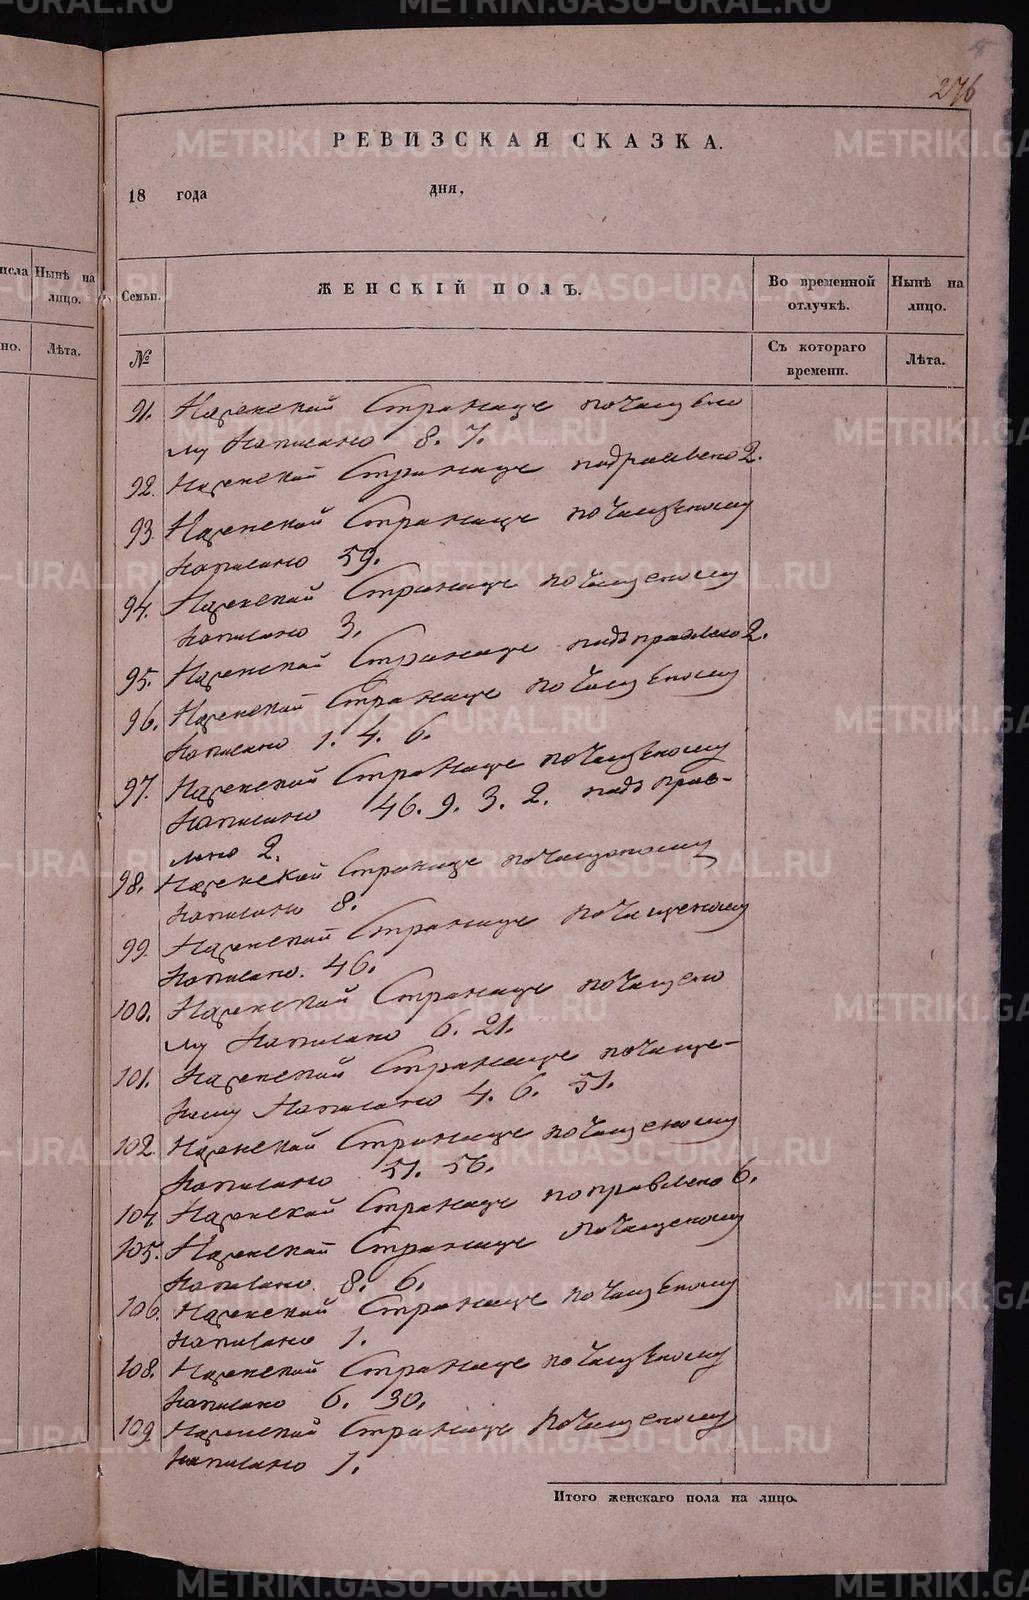 276
РЕВИЗСКАЯ СКАЗКА.
18 года дня,
исла Нынѣ на лицо.
Семьи. ЖЕНСКІЙ ПОЛЪ. Во временной отлучкѣ. Нынѣ на лицо.
но. Лѣта.
№ Съ котораго времени. Лѣта.
91. На женской странице по чищено
му написано 8. 7.
92. На женской странице подправлено 2.
93. На женской странице по чищеному
написано 59.
94. На женской странице по чищеному
написано 3.
95. На женской странице подъправлено 2.
96. На женской странице по чищеному
написано 1. 4. 6.
97. На женской странице по чищеному
написано 46. 9. 3. 2. подъ прав-
лено 2.
98. На женской странице по чищеному
написано 8.
99. На женской странице по чищеному
написано. 46.
100. На женской странице по чищено
му написано 6. 21.
101. На женской странице по чище-
ному написано 4. 6. 51.
102. На женской странице по чищеному
написано 51. 56.
104. На женской странице поправлено 6.
105. На женской странице по чищеному
написано. 8. 6.
106. На женской странице по чищеному
написано 1.
108. На женской странице по чищеному
написано 6. 30.
109. На женской странице по чищеному
написано 1.
Итого женскаго пола на лицо.
METRIKI.GASO-URAL.RU